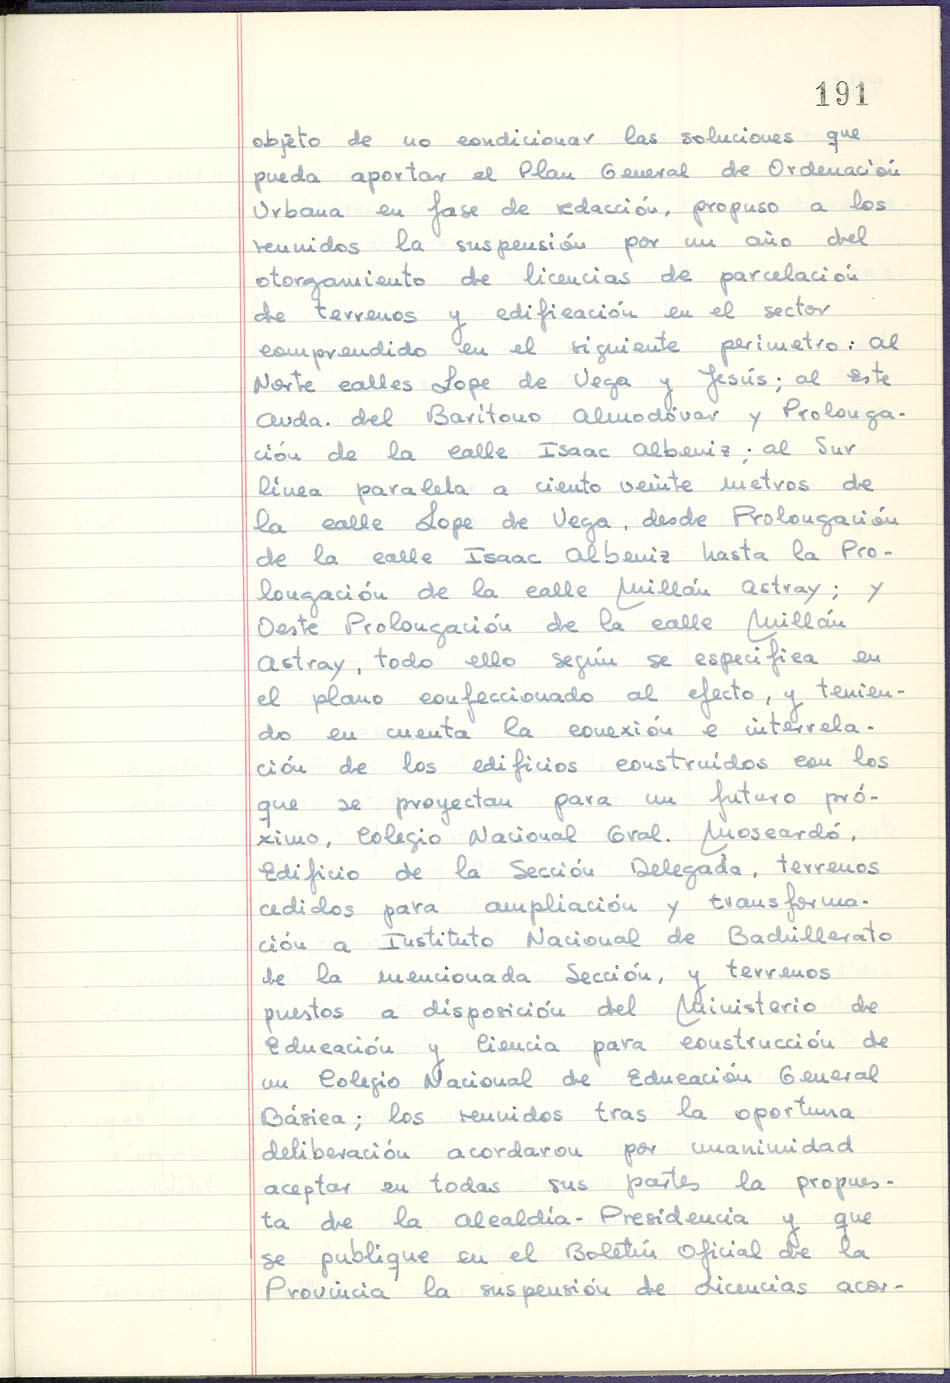 191
objeto de no condicionar las soluciones que
pueda aportar el Plan General de Ordenación
Urbana en fase de redacción, propuso a los
reunidos la suspensión por un año del
otorgamiento de licencias de parcelación
de terrenos y edificación en el sector
comprendido en el siguiente perimetro: al
Norte calles Lope de Vega y Jesús; al Este
Avda. del Barítono Almodóvar y Prolonga-
ción de la calle Isaac Albeniz; al Sur
línea paralela a ciento veinte metros de
la calle Lope de Vega, desde Prolongación
de la calle Isaac Albeniz hasta la Pro-
longación de la calle Millán Astray; y
Oeste Prolongación de la calle Millán
Astray, todo ello según se especifica en
el plano confeccionado al efecto, y tenien-
do en cuenta la conexión e interrela-
ción de los edificios construídos con los
que se proyectan para un futuro pró-
ximo, Colegio Nacional Gral. Moscardó,
Edificio de la Sección Delegada, terrenos
cedidos para ampliación y transforma-
ción a Instituto Nacional de Bachillerato
de la mencionada Sección, y terrenos
puestos a disposición del Ministerio de
Educación y Ciencia para construcción de
un Colegio Nacional de Educación General
Básica; los reunidos tras la oportuna
deliberación acordaron por unanimidad
aceptar en todas sus partes la propues-
ta de la Alcaldía-Presidencia y que
se publique en el Boletín Oficial de la
Provincia la suspensión de Licencias acor-